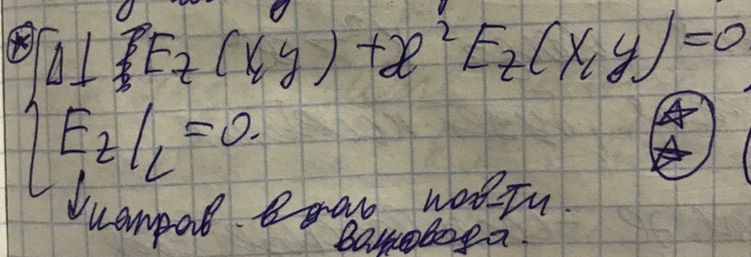 { Δ⊥ Ez(x, y) + æ² Ez(x, y) = 0
Ez|L = 0.
↓ направ. вдоль пов-ти.
волновода.